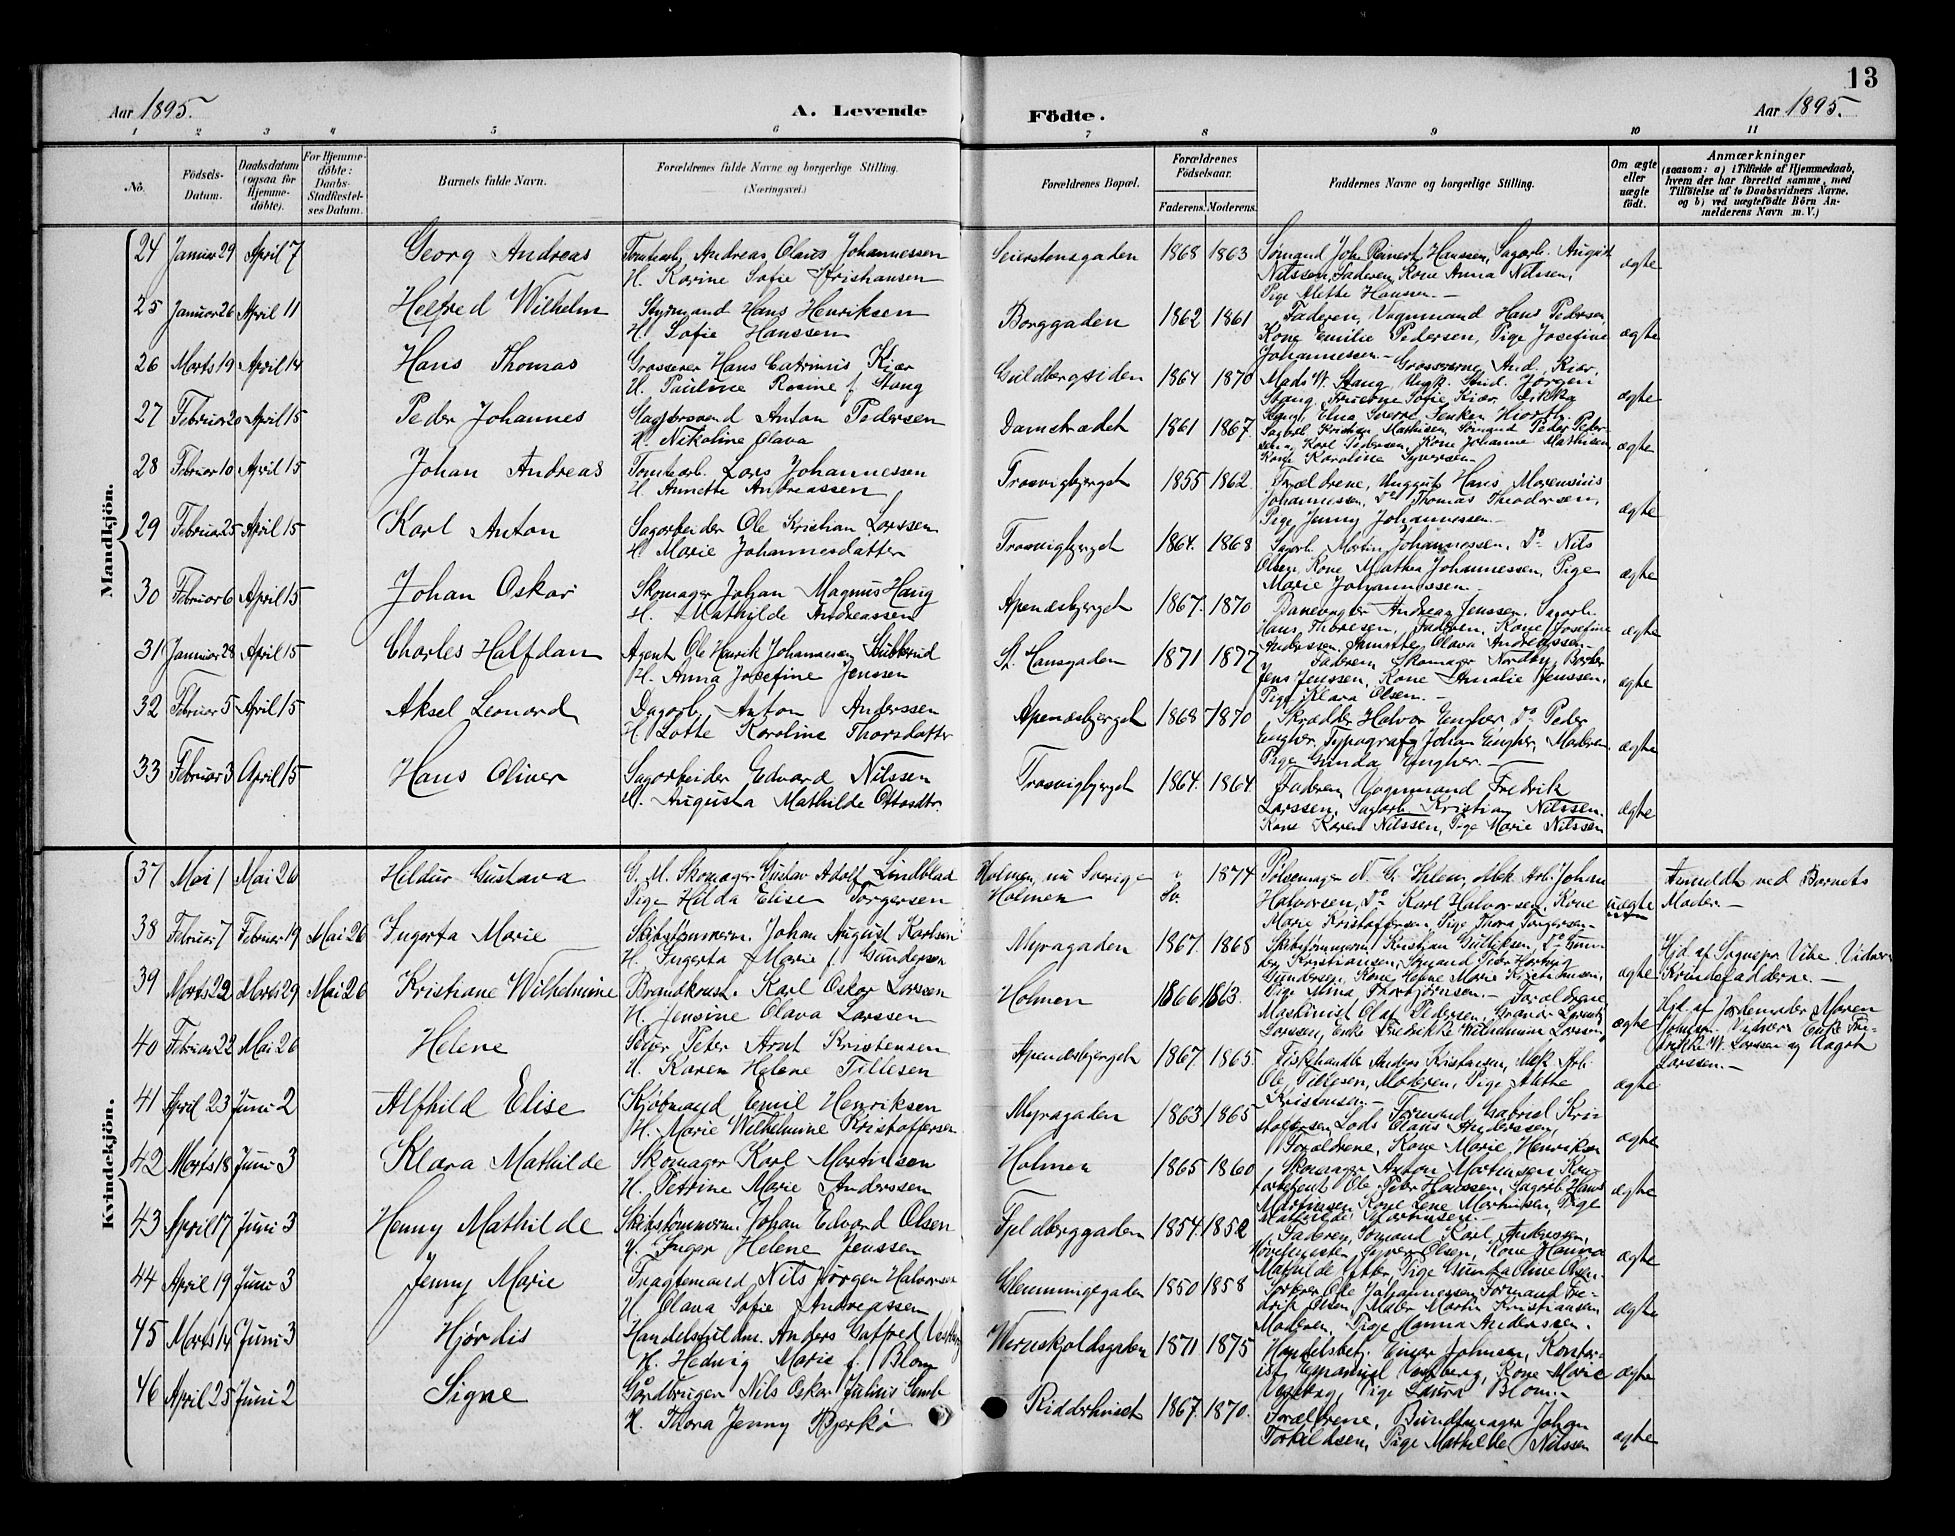 13
Aar 1895.
A. Levende
Födte.
Aar 1895.
1 2 3 4 5 6 7 8 9 10 11
No.
Födsels-
Datum.
Daabsdatum
(ogsaa for
Hjemme-
döbte).
For Hjemme-
döbte:
Daabs-
Stadfæstel-
ses Datum.
Barnets fulde Navn.
Forældrenes fulde Navne og borgerlige Stilling.
(Næringsvei.)
Forældrenes Bopæl.
Forældrenes
Födselsaar.
Faderens. Moderens.
Faddernes Navne og borgerlige Stilling.
Om ægte
eller
uægte
födt.
Anmærkninger
(saasom: a) i Tilfælde af Hjemmedaab,
hvem der har forrettet samme, med
Tilföielse af to Daabsvidners Navne,
og b) ved uægtefödte Börn An-
melderens Navn m. V.)
Mandkjön.
24 Januar 29 April 7 Georg Andreas Tomtearb. Andreas Olaus Johannessen
H. Karine Sofie Kristiansen
Seierstensgaden 1868 1863 Sømand Joh. Reinert Hanssen, Sagarb. August
Nilssen, Faderen, Kone Anna Nilssen,
Pige Alette Hansen.
ægte
25 Januar 26 April 11 Helfred Wilhelm Styrmand Hans Henriksen
H. Sofie Hanssen
Borggaden 1862 1861 Faderen, Vognmand Hans Pedersen,
Kone Emilie Pedersen, Pige Josefine
Johannessen.
ægte
26 Marts 19 April 14 Hans Thomas Grosserer Hans Catrinus Kiær
H. Pauline Rosine f. Stang
Guldbergsiden 1864 1870 Grossererne And. Kiær,
Mads W. Stang, Stud. Jørgen
Stang, Fruerne Sofie Kiær,
ægte
27 Februar 20 April 15 Peder Johannes Sagbrsvend Anton Pedersen
H. Nikoline Olava
Damstrædet 1861 1867 Sagbrb. Kristian Mathisen, Sømand Peder Peder-
sen, Karl Pedersen, Kone Johanne Mathisen,
Kone Karoline Syversen.
ægte
28 Februar 10 April 15 Johan Andreas Tomtearb. Lars Johannessen
H. Annette Andreassen
Trosvigbjerget 1855 1862 Forældrene, Unggut Hans Marensius
Johannessen, Do Thomas Theodorsen,
Pige Jenny Johannessen.
ægte
29 Februar 25 April 15 Karl Anton Sagarbeider Ole Kristian Larssen
H. Marie Johannesdatter
Trosvigbjerget 1864. 1868 Sagarb. Martin Johannessen, Do Nils
Olsen, Kone Mathea Johannessen, Pige
Marie Johannessen.
ægte
30 Februar 6 April 15 Johan Oskar Skomager Johan Magnus Haug
H. Mathilde Andreassen
Apenæsbjerget 1867. 1870 Banevogter Andreas Jenssen, Sagarb.
Hans Thoresen, Faderen, Kone Josefine
Andersen, Olava Andreassen.
ægte
31 Januar 28 April 15 Charles Halfdan Agent Ole Henrik Johannesen Stubberud
H. Anna Josefine Jenssen
St. Hansgaden 1871 1877 Faderen, Skomager Nordby,
Jens Jenssen, Kone Amalie Jenssen,
Pige Klara Olsen.
ægte
32 Februar 5 April 15 Aksel Leonard Dagarb. Anton Anderssen
H. Lotte Karoline Thorsdatter
Apenæsbjerget 1868 1870 Skrædder Halvor Engher, Do Peder
Engher, Typograf Johan Engher, Moderen,
Pige Gunda Engher.
ægte
33 Februar 3 April 15 Hans Oliver Sagarbeider Edvard Nilssen
H. Augusta Mathilde Ottosdtr.
Trosvigbjerget 1864. 1864 Faderen, Vognmand Fredrik
Larssen, Sagarb. Kristian Nilssen,
Kone Karen Nilssen, Pige Marie Nilssen
ægte
Kvindekjön.
37 Mai 1 Mai 26 Hildur Gustava G. M. Skomager Gustav Adolf Lindblad
Pige Hilda Elise Torgersen
Holmen, nu Sverige
Holmen
1874 Pølsemager N. G. Ihlen, Mek. Arb. Johan
Halvorsen, Do Karl Halvorsen, Kone
Marie Kristoffersen, Pige Thora Torgersen.
uægte
Anmeldt ved Barnets
Moder.
38 Februar 7 Februar 19 Mai 26 Ingarta Marie Skibstømmerm. Johan August Karlsen
H. Ingarta Marie f. Gundersen
Myragaden 1867. 1868 Skibstømmerm. Kristian Gulliksen, Do Gun-
der Kristiansen, Sømand Peder Hartvig
Gundersen, Kone Helene Marie Kristiansen,
Pige Alma Thorbjørnsen.
ægte
Hjd. af Sognepr. Vibe. Vidner
Kvindefadderne.
39 Marts 22 Marts 29 Mai 26 Kristiane Wilhelmine Brandkonst. Karl Oskar Larssen
H. Jensine Olava Larssen
Holmen 1866 1863. Forældrene,
Maskinist Olaf Pedersen, Lorentz
Larssen, Enke Fredrikke Wilhelmine Larssen,
ægte
Hjd. af Jordemoder Maren
Vidner: Enke Fre-
drikke W. Larssen og Aagot
Larssen.
40 Februar 22 Mai 26 Helene Peter Arnt Kristensen
H. Karen Helene Tillesen
Apenæsbjerget 1867. 1865. Fiskehandler Anders Kristiansen, Mek. Arb.
Ole Tillesen, Moderen, Pige Alethe
Kristensen.
ægte
41 April 23 Juni 2 Alfhild Elise Kjøbmand Emil Henriksen
H. Marie Wilhelmine Kristoffersen
Myragaden 1863 1865 Formand Gabriel Kri-
stoffersen, Lods Olaus Anderssen,
Forældrene, Kone Marie Henriksen
ægte
42 Marts 18 Juni 3 Klara Mathilde Skomager Karl Martinsen
H. Petrine Marie Anderssen
Holmen 1865 1860 Skomager Anton Martinsen, Kon-
Ole Peter Hanssen, Sagarb. Hans
Martinsen, Kone Lene Martinsen, Pige
Mathilde Martinsen.
ægte
43 April 17 Juni 3 Henny Mathilde Skibstømmerm. Johan Edvard Olsen
H. Inger Helene Jenssen
Fjeldberggaden 1854. 1852 Faderen, Sømand Karl Anderssen,
Syver Olsen, Kone Hanna
Mathilde Pige Gunda Oline Olsen.
ægte
44 April 19 Juni 3 Jenny Marie Fragtemand Nils Jørgen Halvorsen
H. Olava Sofie Andreassen
Glemmingegaden 1850 1858 Ole Johannessen, Formand Fre-
drik Olsen, Maler Martin Kristiansen,
Moderen, Pige Hanna Anderssen.
ægte
45 Marts 14 Juni 3 Hjørdis Handelsfuldm. Anders Gotfred
H. Hedvig Marie f. Blom
Wernskjoldsgaden 1871 1875 Handelsbetj. Einar Johnsen, Kontor-
ist Kone Marie
Pige Laura Blom.
ægte
46 April 25 Juni 2 Signe Gårdbruger Nils Oskar Julius Lund
H. Thora Jenny Bjerkø
Ridderhuset 1867. 1870. Forældrene, Bundtmager Johan
Torkildsen, Pige Mathilde Nilssen
ægte